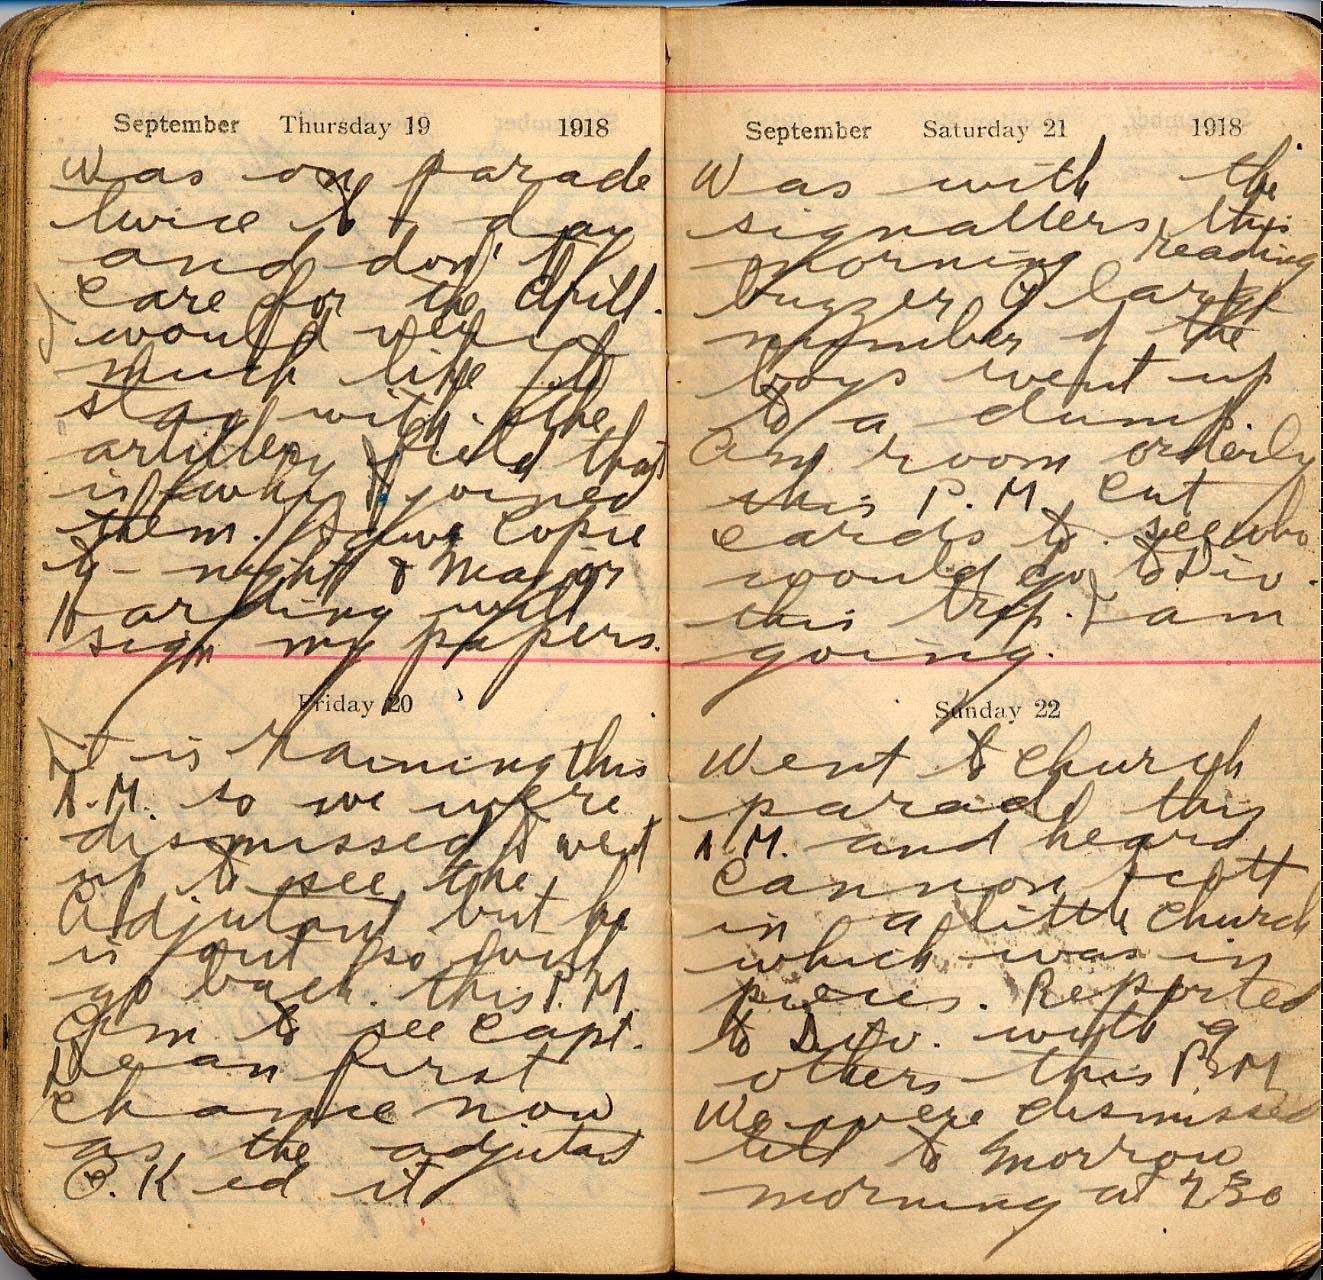 September Thursday 19 1918
Was on parade
twice to-day
and don't
care for the drill.
I would very
much like to
stay with the
artillery field that
is why I joined
them. I have copie
to-night & Major
Harding will
sign my papers.
Friday 20
It is raining this
A.M. so we were
dismissed I went
up to see the
Adjutant but he
is out so will
go back this P.M.
Am to see Capt.
Dean first
chance now
as the adjutant
O.K ed it
September Saturday 21 1918
Was with the
signallers this
morning reading
buzzer a large
number of the
boys went up
to a dump
Am room orderly
this P.M. Cut
cards to see who
would go to Div.
this trip. I am
going.
Sunday 22
Went to Church
parade this
A.M. and heard
Cannon Scott
in a little church
which was in
pieces. Reported
to Div. with 9
others this P.M.
We were dismissed
till to morrow
morning at 7 30